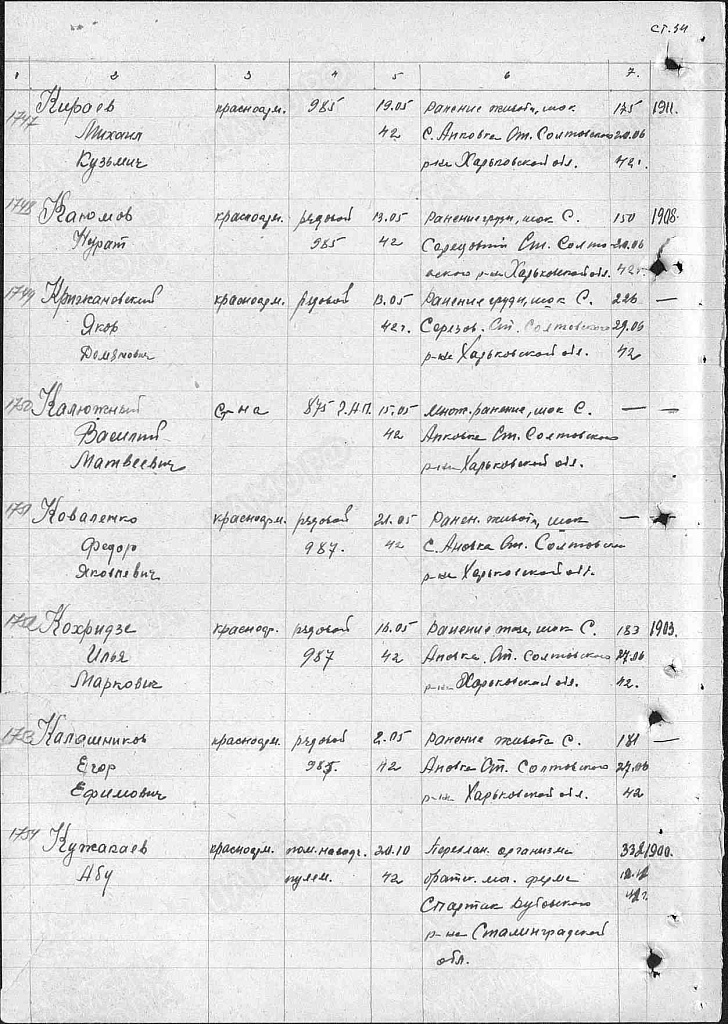 ст. 54
1 2 3 4 5 6 7.
1747 Кираев красноарм. 985 19.05 ранение живота, шок 175 1911.
Михаил 42 С. Анковка Ст. Солтовского 20.06
Кузьмич р-на Харьковской обл. 42г.
1748 Каюмов красноарм. рядовой 13.05 ранение груди, шок С. 150 1908.
Нурат 985 42 Ст. Солто- 20.06
вского р-на Харьковской обл. 42г.
1749 Крижановский красноарм. рядовой 13.05 ранение груди, шок С. 226 —
Якор 42г. Ст. Солтовского 29.06
р-на Харьковской обл. 42
1750 Калюжный С-на 875 15.05 множ. ранение, шок С. — —
Василий 42 Анковка Ст. Солтовского
Матвеевич р-на Харьковской обл.
1751 Коваленко красноарм. рядовой 21.05 Ранен. живота, шок — —
Федор 987. 42 С. Ановка Ст. Солтовск
Яковлевич р-на Харьковской обл.
1752 Кохридзе красноар. рядовой 16.05 ранение шок С. 183 1903.
Илья 987 42 Ановка. Ст. Солтовского 27.06
Маркович р-на Харьковской обл. 42.
1753 Калашников красноарм. рядовой 2.05 ранение живота С. 181 —
Егор 985. 42 Ановка Ст. Солтовского 27.06
Ефимович р-на Харьковской обл. 42
1754 Кужакаев красноарм. пом. наводч. 20.10 организма 338 1900.
Абу пулем. 42 братск. мо. ферма
Спартак Дубовского 42г.
р-на Сталинградской
обл.